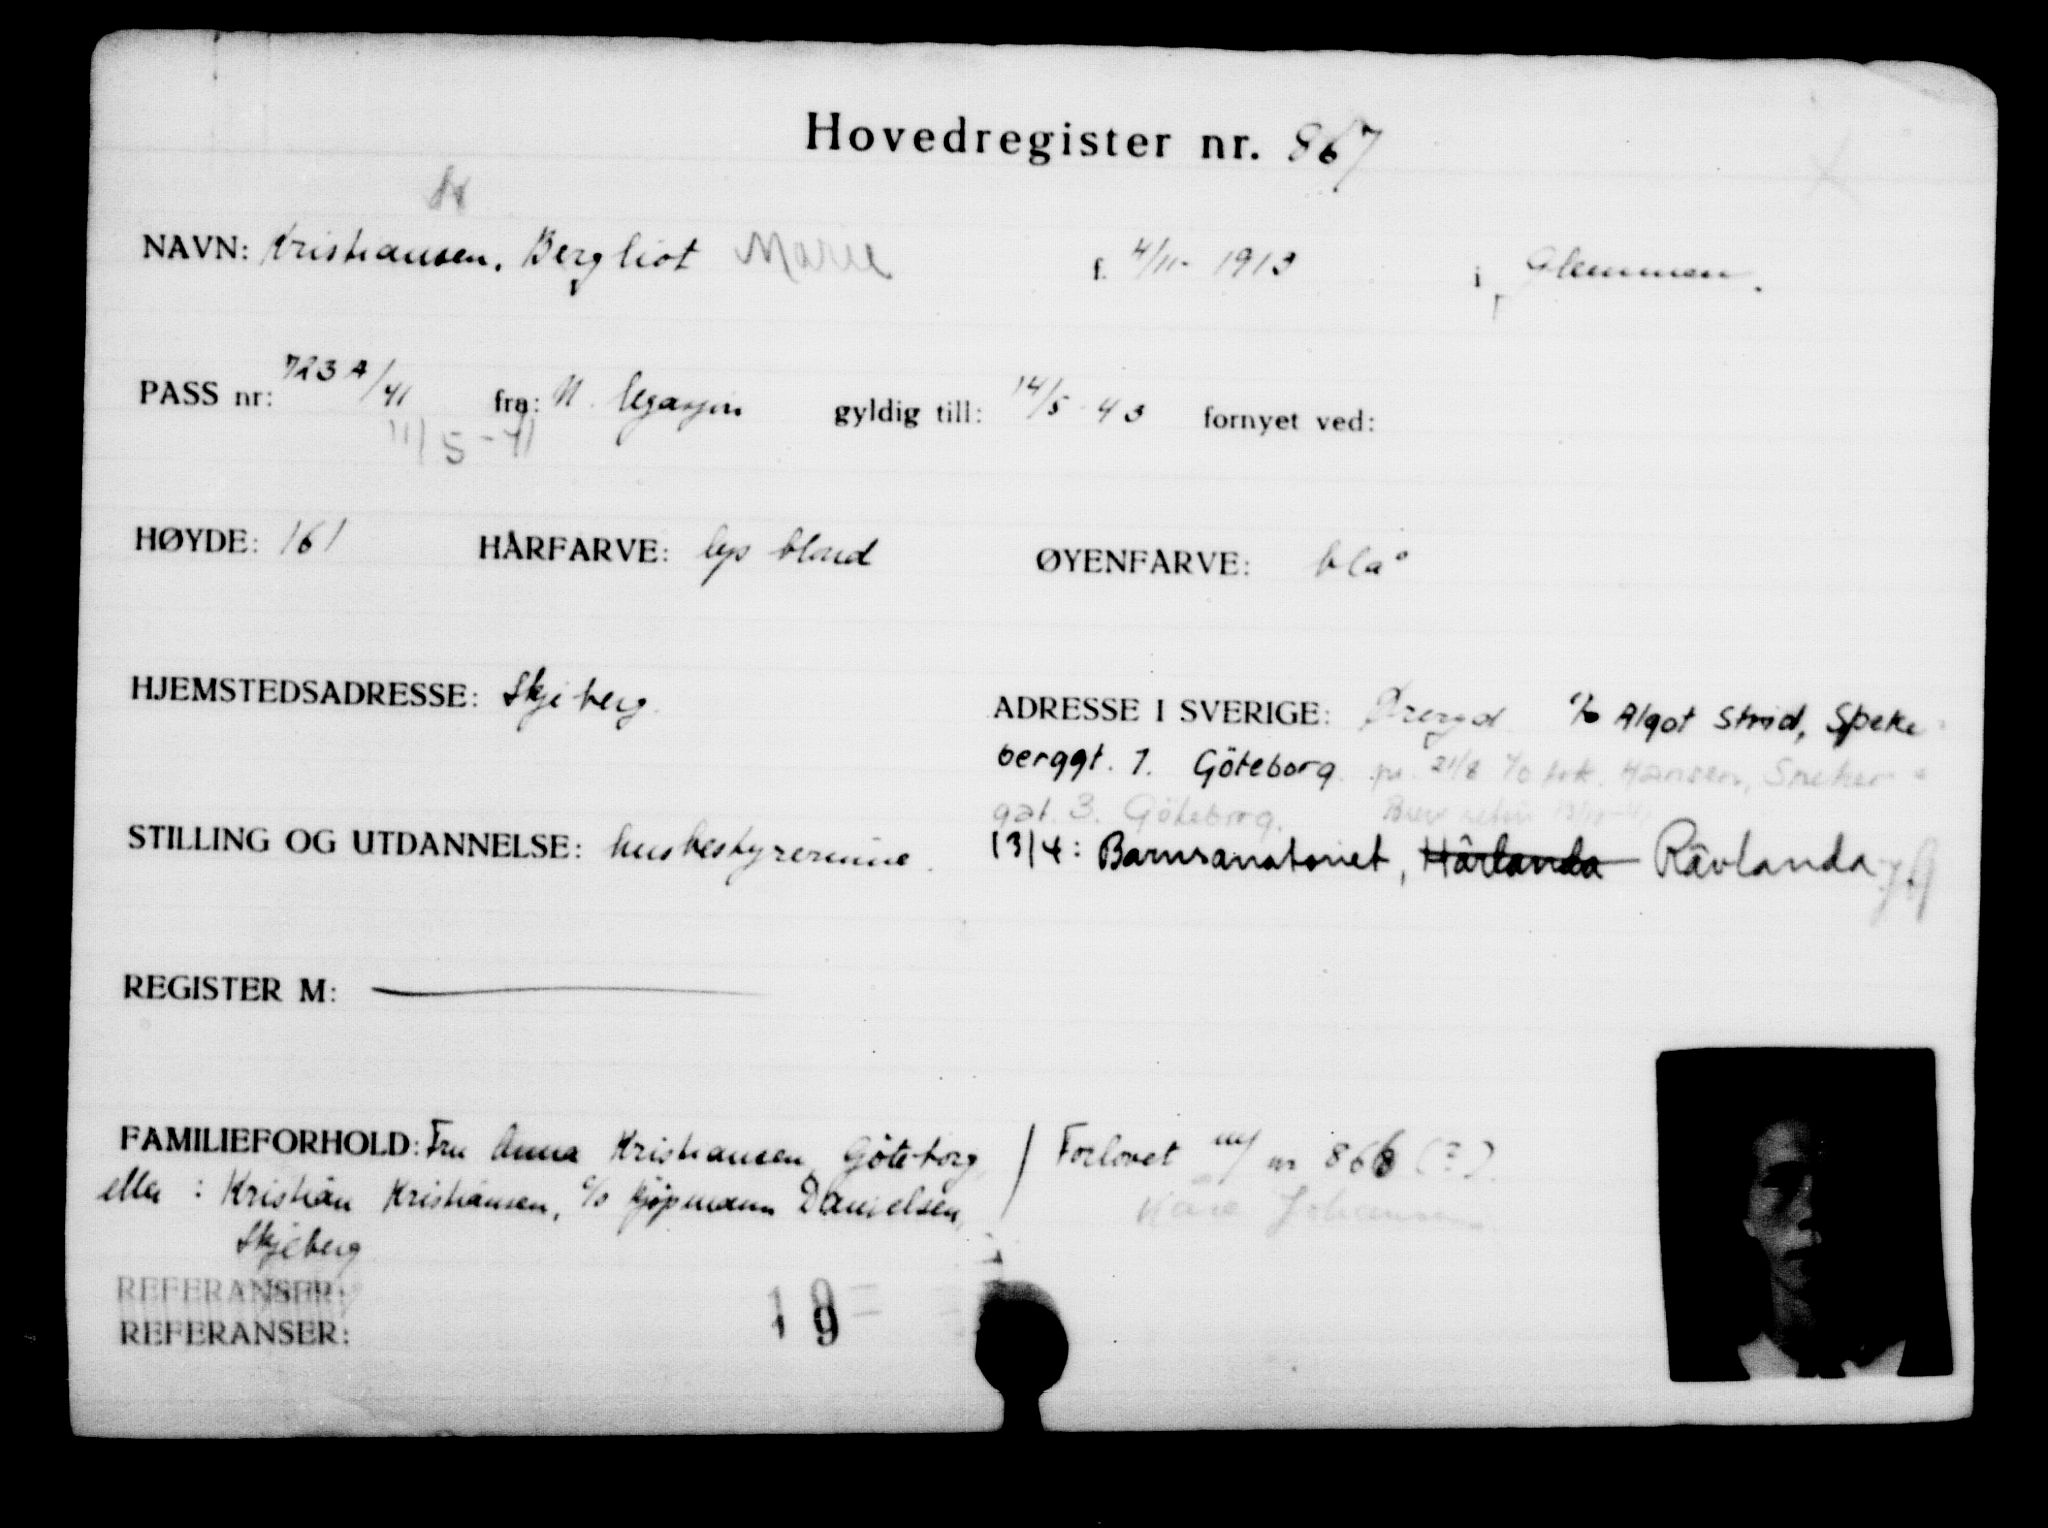 Hovedregister nr. 867
NAVN: Kristiansen, Bergliot Marie f. 4/11- 1913 i Glemmen.
PASS nr: 723 A/41 fra: N. legasjon gyldig till: 14/5-43 fornyet ved:
11/5-41
HØYDE: 161 HÅRFARVE: lys blond ØYENFARVE: blå
HJEMSTEDSADRESSE: Skjeberg. ADRESSE I SVERIGE: Øreryd c/o Algot Strid, Speke-
berggt. 7. Göteborg. pr. 21/8 c/o frk. Hansen, Sneker-
gat. 3. Göteborg. Brev retur
STILLING OG UTDANNELSE: husbestyrerinne. 13/4: Barnsanatoriet, Hårlanda Råvlanda
REGISTER M:
FAMILIEFORHOLD: Fru Anna Kristiansen, Göteborg / Forlovet m/ nr 866 (?).
eller : Kristian Kristiansen, c/o kjøpmann Danielsen, Kåre Johansen
Skjeberg
REFERANSER:
REFERANSER:
19